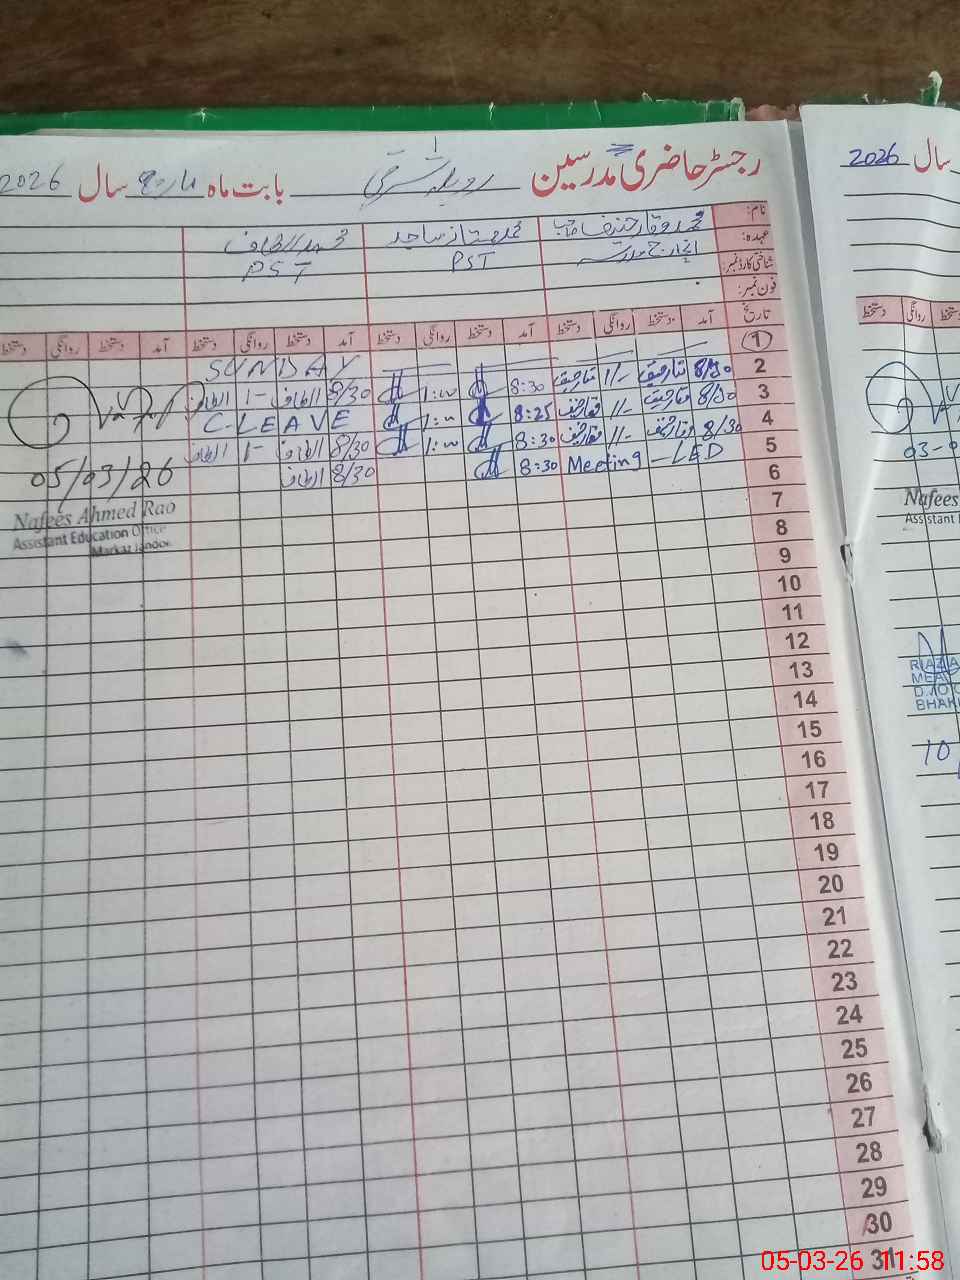 رجسٹر حاضری مدرسین بابت ماہ مارچ سال 2026
نام: محمد وقار حنیف صاحب محمد ممتاز ساجد محمد الطاف
عہدہ: انچارج مدرسہ PST PST
شناختی کارڈ نمبر:
فون نمبر:
تاریخ آمد دستخط روانگی دستخط آمد دستخط روانگی دستخط آمد دستخط روانگی دستخط آمد دستخط روانگی دستخط
1 SUNDAY
2 8/30 1/- 8:30 1:00 8/30 الطاف 1- الطاف
3 8/30 1/- 8:25 1:00 C-LEAVE
4 8/30 1/- 8:30 1:00 8/30 الطاف 1- الطاف
5 Meeting - LED 8:30 8/30 الطاف
6
7
8
9
10
11
12
13
14
15
16
17
18
19
20
21
22
23
24
25
26
27
28
29
30
31
05/03/26
Nafees Ahmed Rao
Assistant Education Office
Markaz Jandoo
سال 2026
روانگی دستخط
03-0
Nafees
Assistant
RIAZ A
MEA
D.O
BHAK
10
05-03-26 11:58